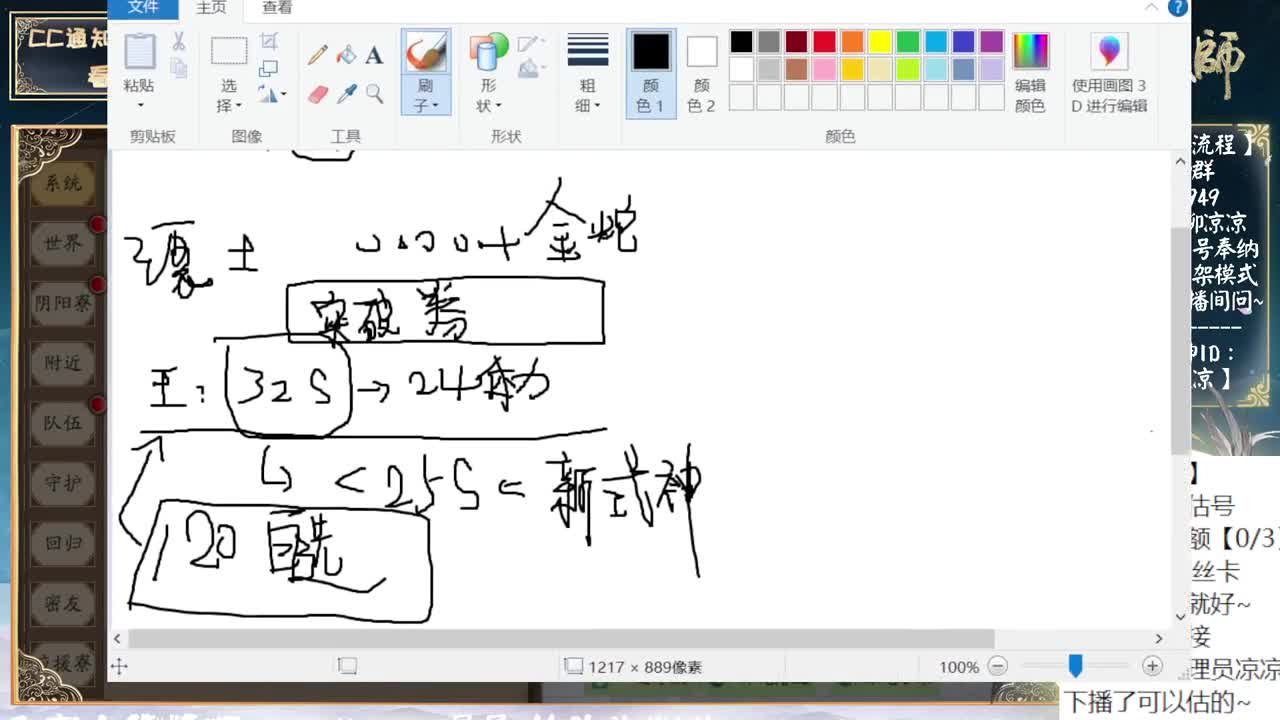 文件 主页 查看
CC通知
粘贴
选择
刷子
形状
粗细
颜色 1
颜色 2
编辑颜色
使用画图 3D 进行编辑
剪贴板 图像 工具 形状 颜色
系统
世界
阴阳寮
附近
队伍
守护
回归
密友
御
金蛇
突破券
王: 32S → 24体力
< 25S = 新式神
20
流程】
群
949
卯凉凉
号奉纳
架模式
播间问~
凉】
】
估号
额【0/3】
丝卡
就好~
接
理员凉凉
下播了可以估的~
1217 × 889像素
100%